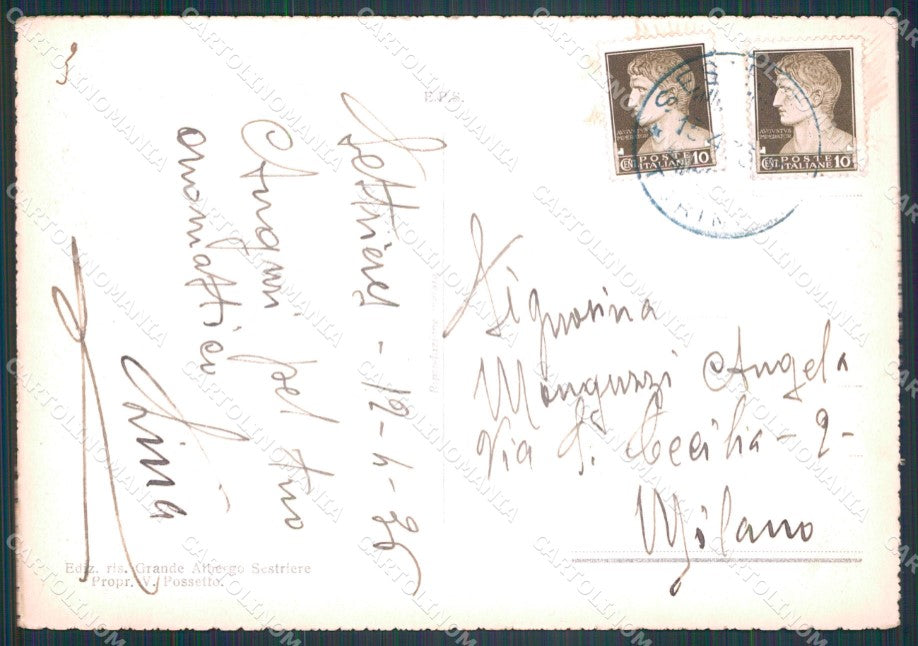 Sestrieres - 12-4-36
Auguri pel tuo
onomastico
Lina
Signorina
Monguzzi Angela
Via S. Cecilia - 2 -
Milano
AVGVSTVS
IMPERATOR
CENT. POSTE
ITALIANE 10
AVGVSTVS
IMPERATOR
CENT. POSTE
ITALIANE 10
Ediz. ris. Grande Albergo Sestriere
Propr. V. Possetto.
CARTOLINOMANIA